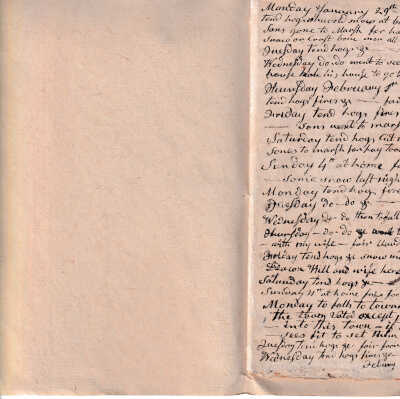 Monday January 29th
tend hogs snow at
sons gone to Marsh for ha
Snow on Croft bore men all
Tuesday tend hogs &c
Wednesday do-do went to see
house his house to go
Thursday February 1st
tend hogs fires &c — fai
Friday tend hogs fires
— sons went to mars
Saturday tend hogs Cut
Sones to marsh for hay too
Sunday 4th at home f
— Some snow last nigh
Monday tend hogs fire
Tuesday do - do &c
Wednesday do - do then to fall
Thursday — do - do &c
— with my wife — fair
Friday tend hogs &c snow
Deacon Hill and wife here
Saturday tend hogs &c —
Sunday 11th at home fires
Monday to falls to town
the town voted except
— into this town — if
sees fit to set them
Tuesday tend hogs &c fair
Wednesday tend hogs fires &c
Febury